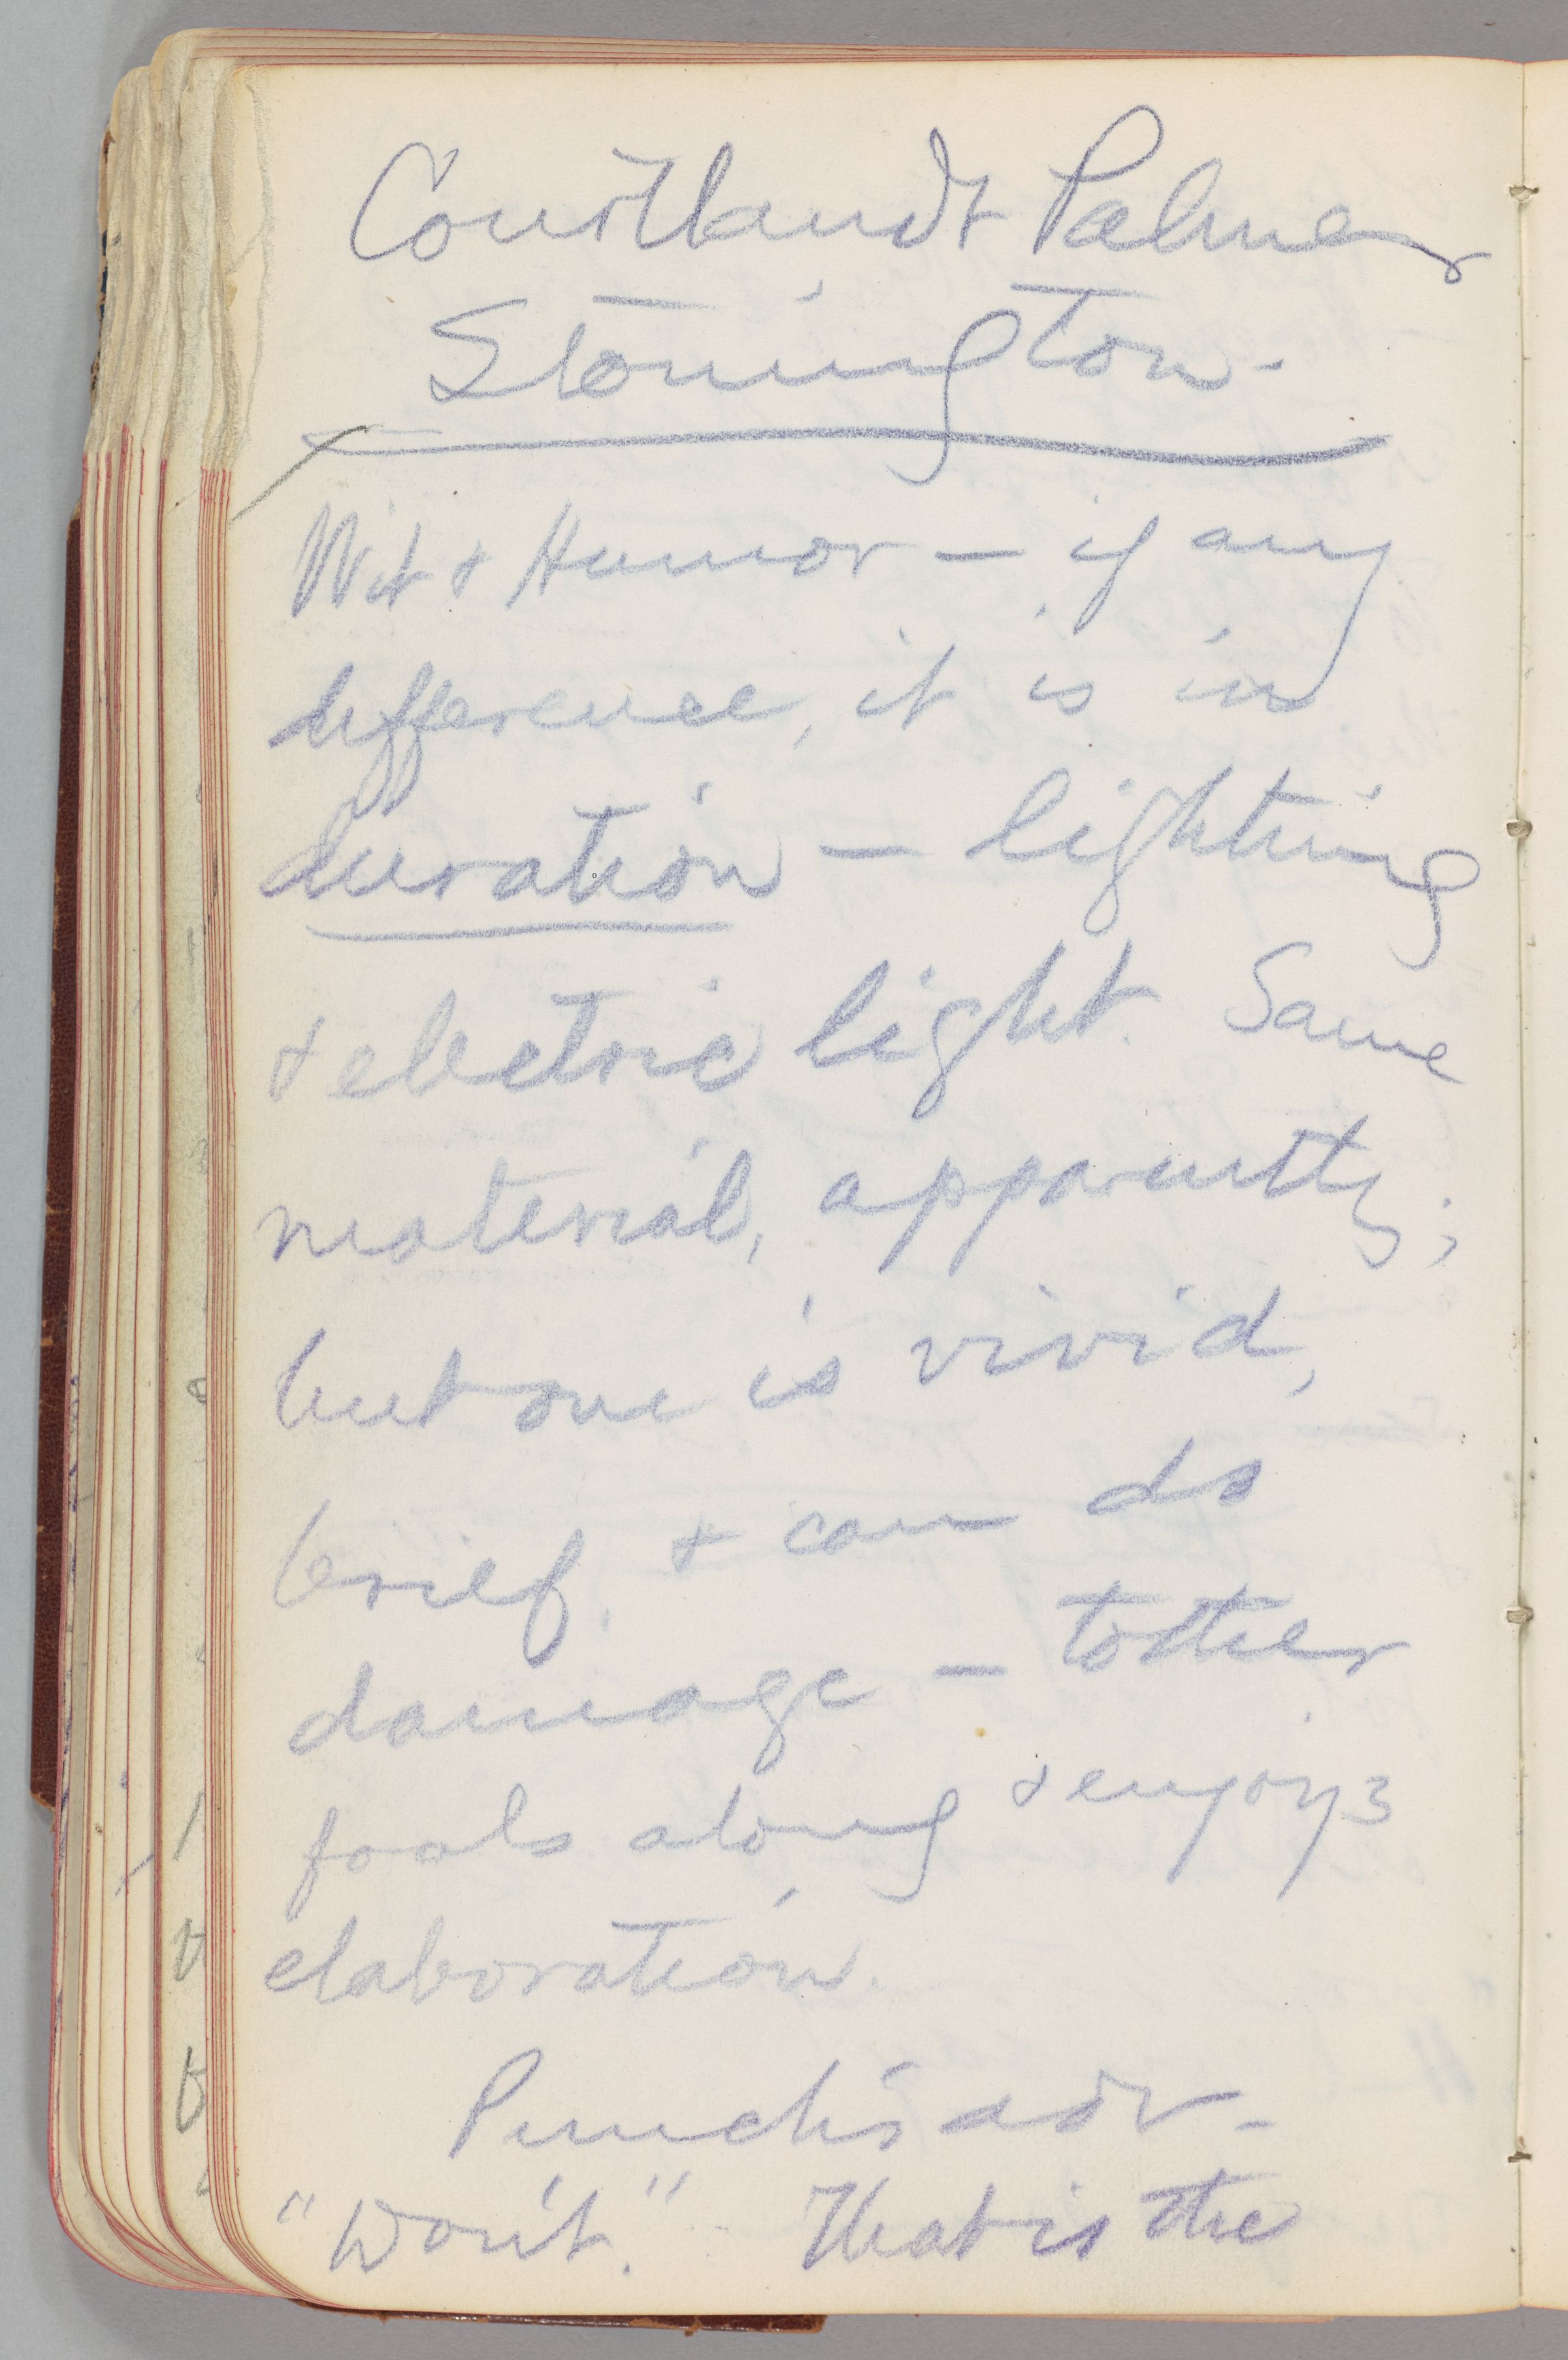 Courtlandt Palmer
Stonington.
Wit & Humor — if any
difference, it is in
duration — lightning
& electric light. Same
material, apparently;
but one is vivid,
brief, & can do
damage — tother
fools along & enjoys
elaboration.
Punch's adv.
"Don't." That is the